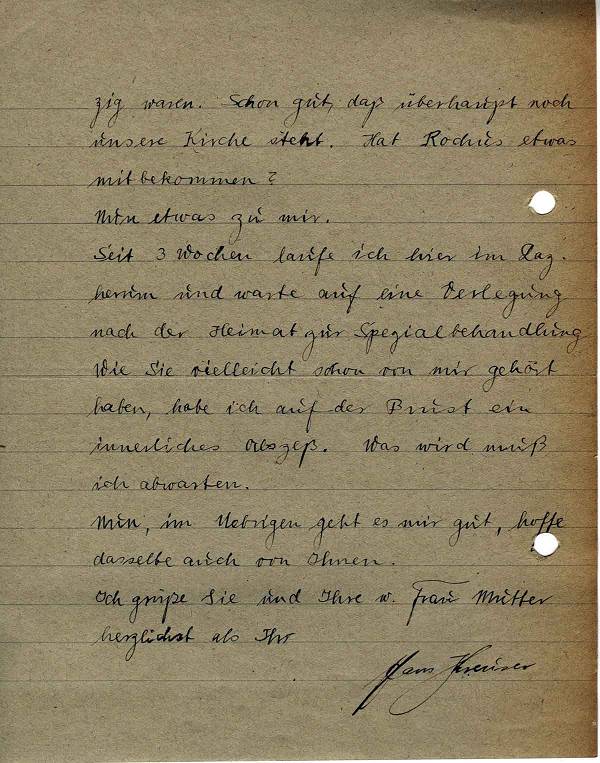 zig waren. Schon gut, daß überhaupt noch
unsere Kirche steht. Hat Rochus etwas
mitbekommen?
Nun etwas zu mir.
Seit 3 Wochen laufe ich hier im Laz.
herum und warte auf eine Verlegung
nach der Heimat zur Spezialbehandlung
Wie Sie vielleicht schon von mir gehört
haben, habe ich auf der Brust ein
innerliches Abszeß. Was wird muß
ich abwarten.
Nun, im Uebrigen geht es mir gut, hoffe
dasselbe auch von Ihnen.
Ich grüße Sie und Ihre w. Frau Mutter
herzlichst als Ihr
Hans